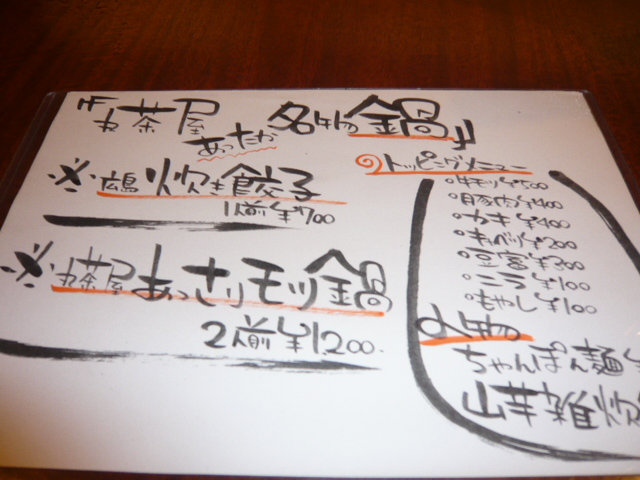 『丸茶屋 あったか 名物鍋』
※広島炊き餃子
1人前 ¥700
※丸茶屋 あっさりモツ鍋
2人前 ¥1200.
トッピングメニュー
◦牛モツ ¥500
◦豚肉 ¥400
◦カキ ¥400
◦キャベツ ¥200
◦豆富 ¥300
◦ニラ ¥100
◦もやし ¥100
〆物
ちゃんぽん麺
山芋雑炊